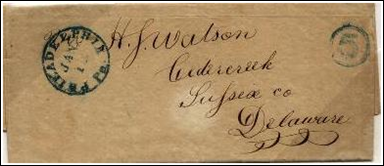 PHILADELPHIA Pa.
JAN
5
H. J. Watson
Cedercreek
Sussex co
Delaware